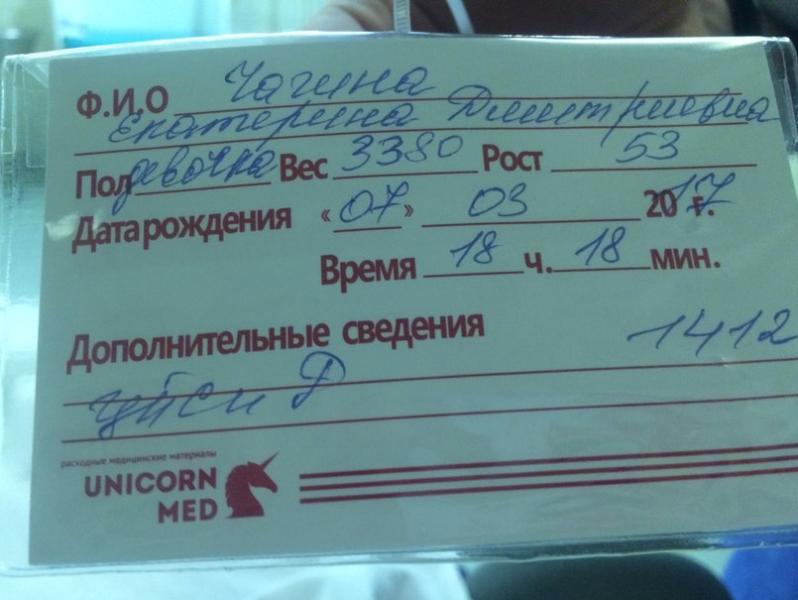 Ф.И.О Чагина
Екатерина Дмитриевна
Пол девочка Вес 3380 Рост 53
Дата рождения «07» 03 2017 г.
Время 18 ч. 18 мин.
Дополнительные сведения 1412
расходные медицинские материалы
UNICORN
MED